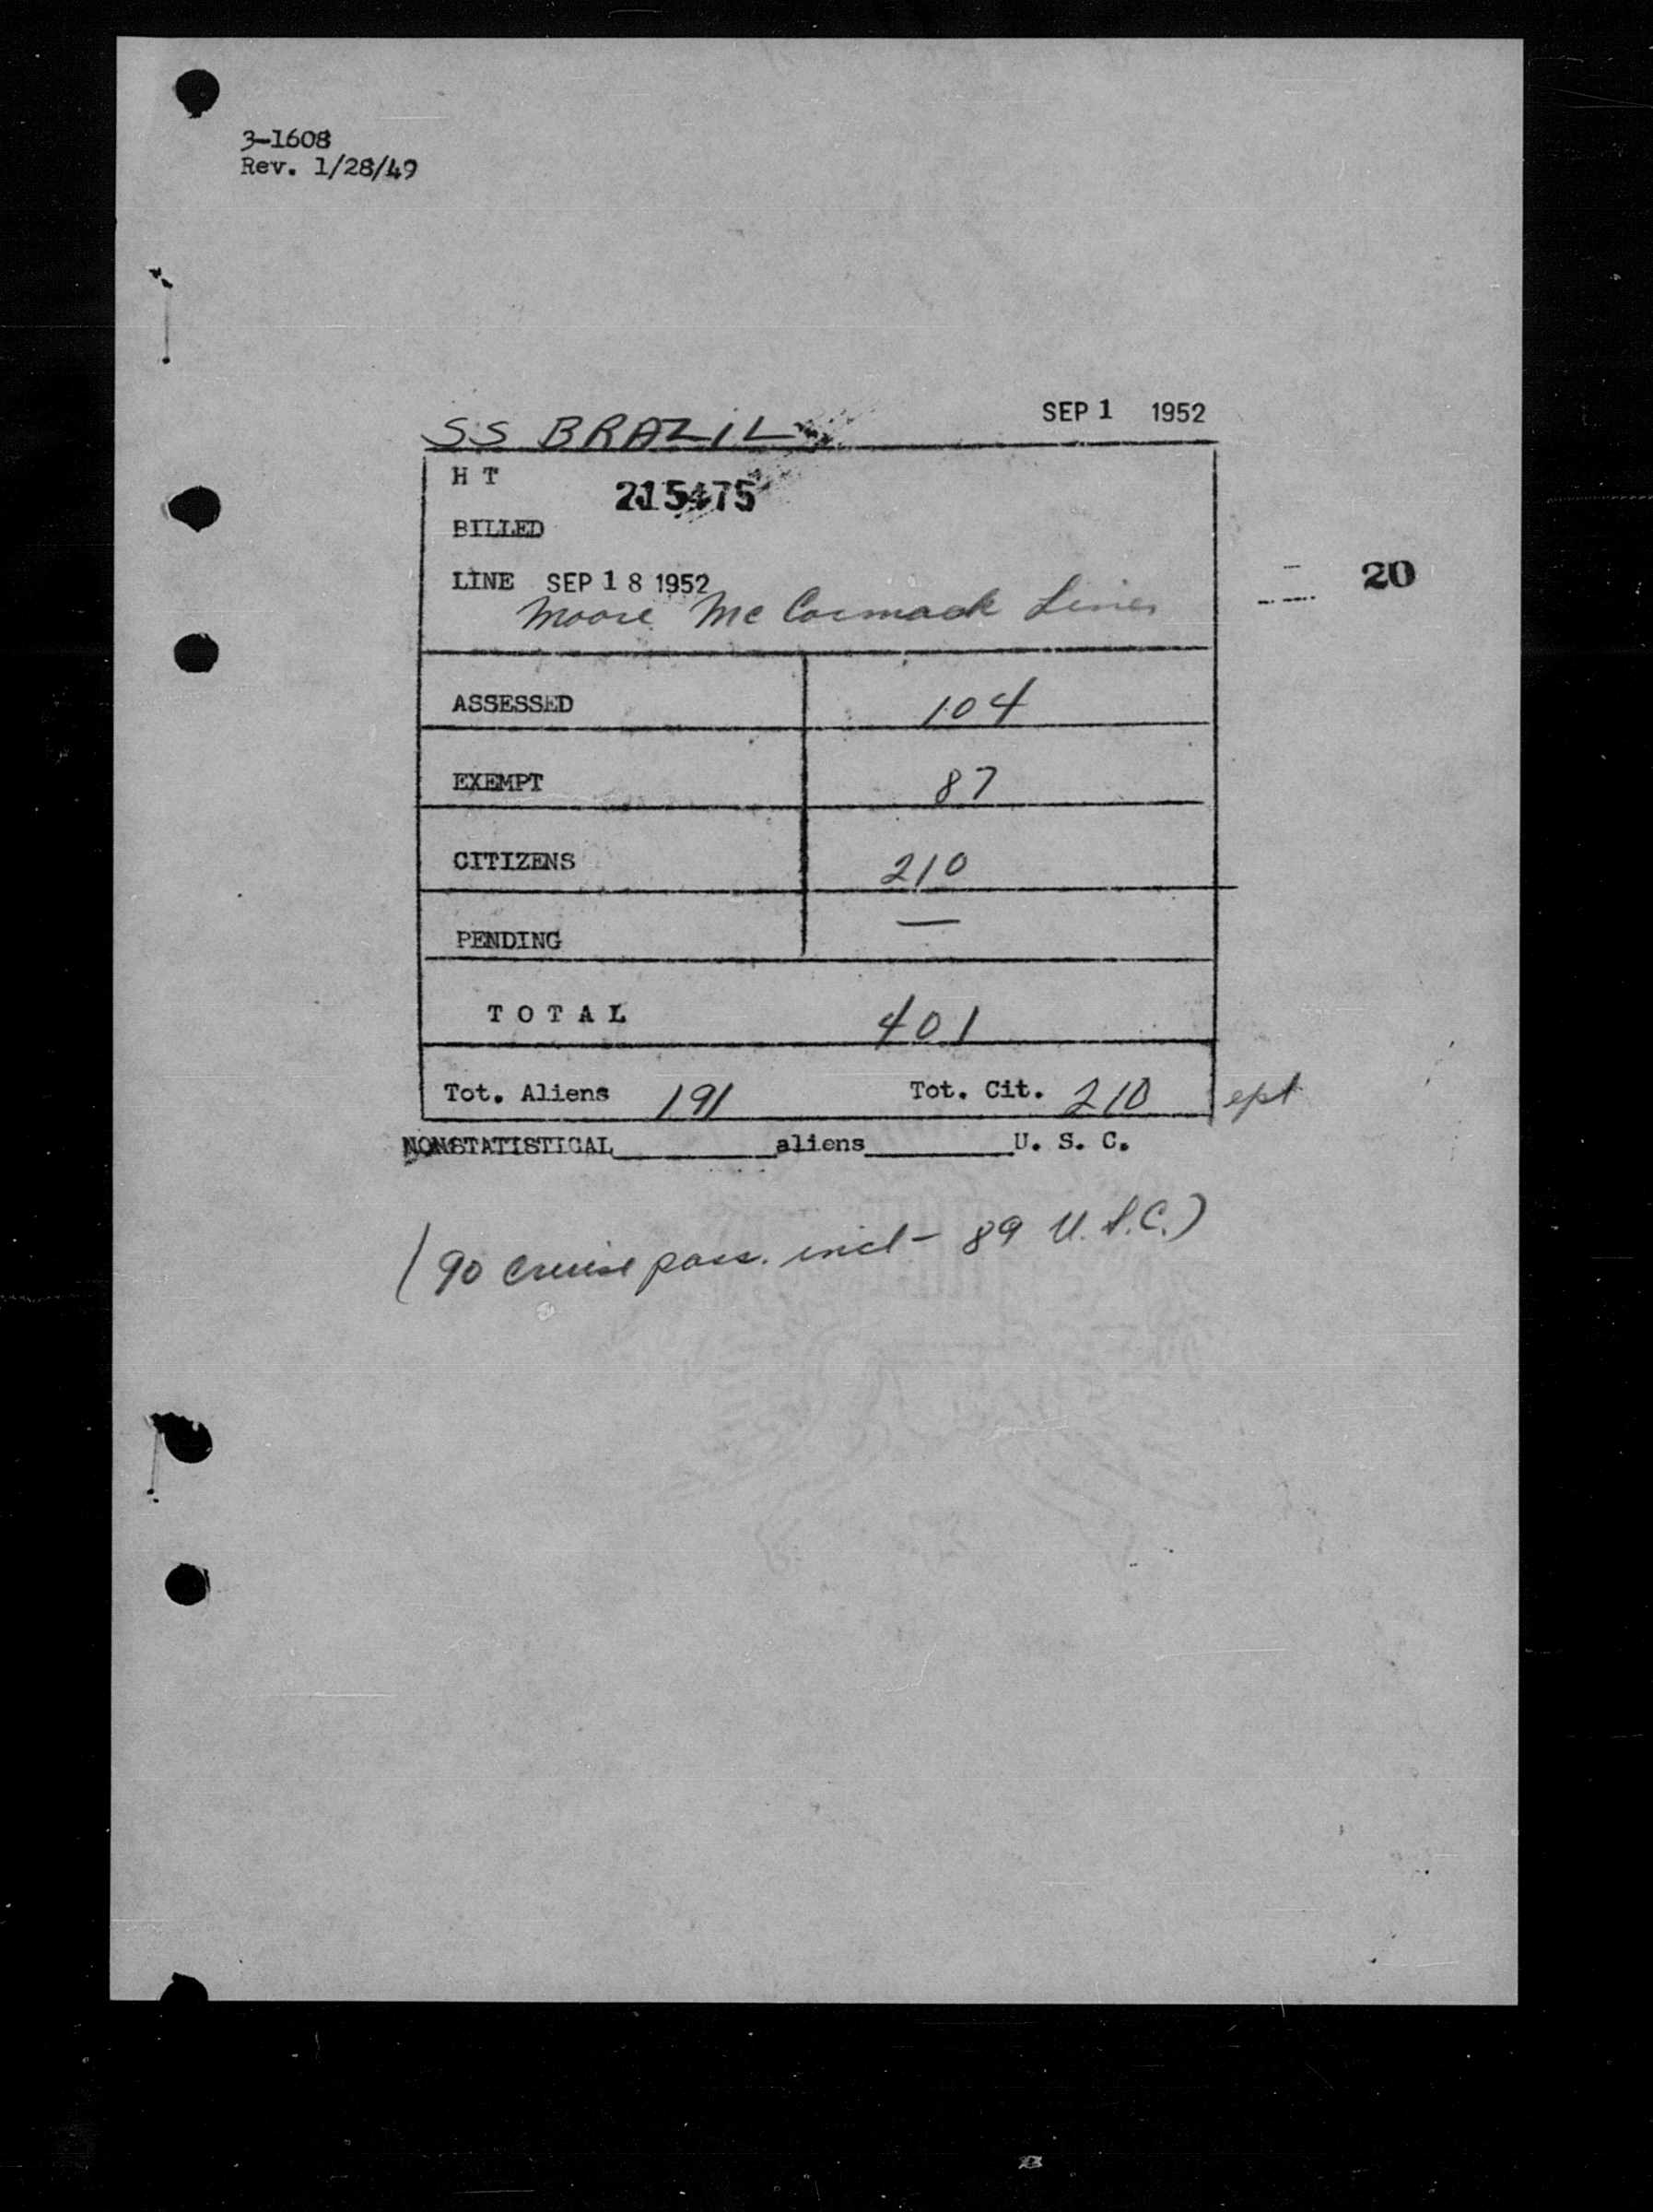 3-1608
Rev. 1/28/49
SS BRAZIL SEP 1 1952
H T
215475
BILLED
LINE SEP 18 1952
Moore Mc Cormack Lines
20
ASSESSED 104
EXEMPT 87
CITIZENS 210
PENDING —
TOTAL 401
Tot. Aliens 191 Tot. Cit. 210 ept
NONSTATISTICAL________aliens________U. S. C.
(90 cruise pass. incl - 89 U.S.C.)